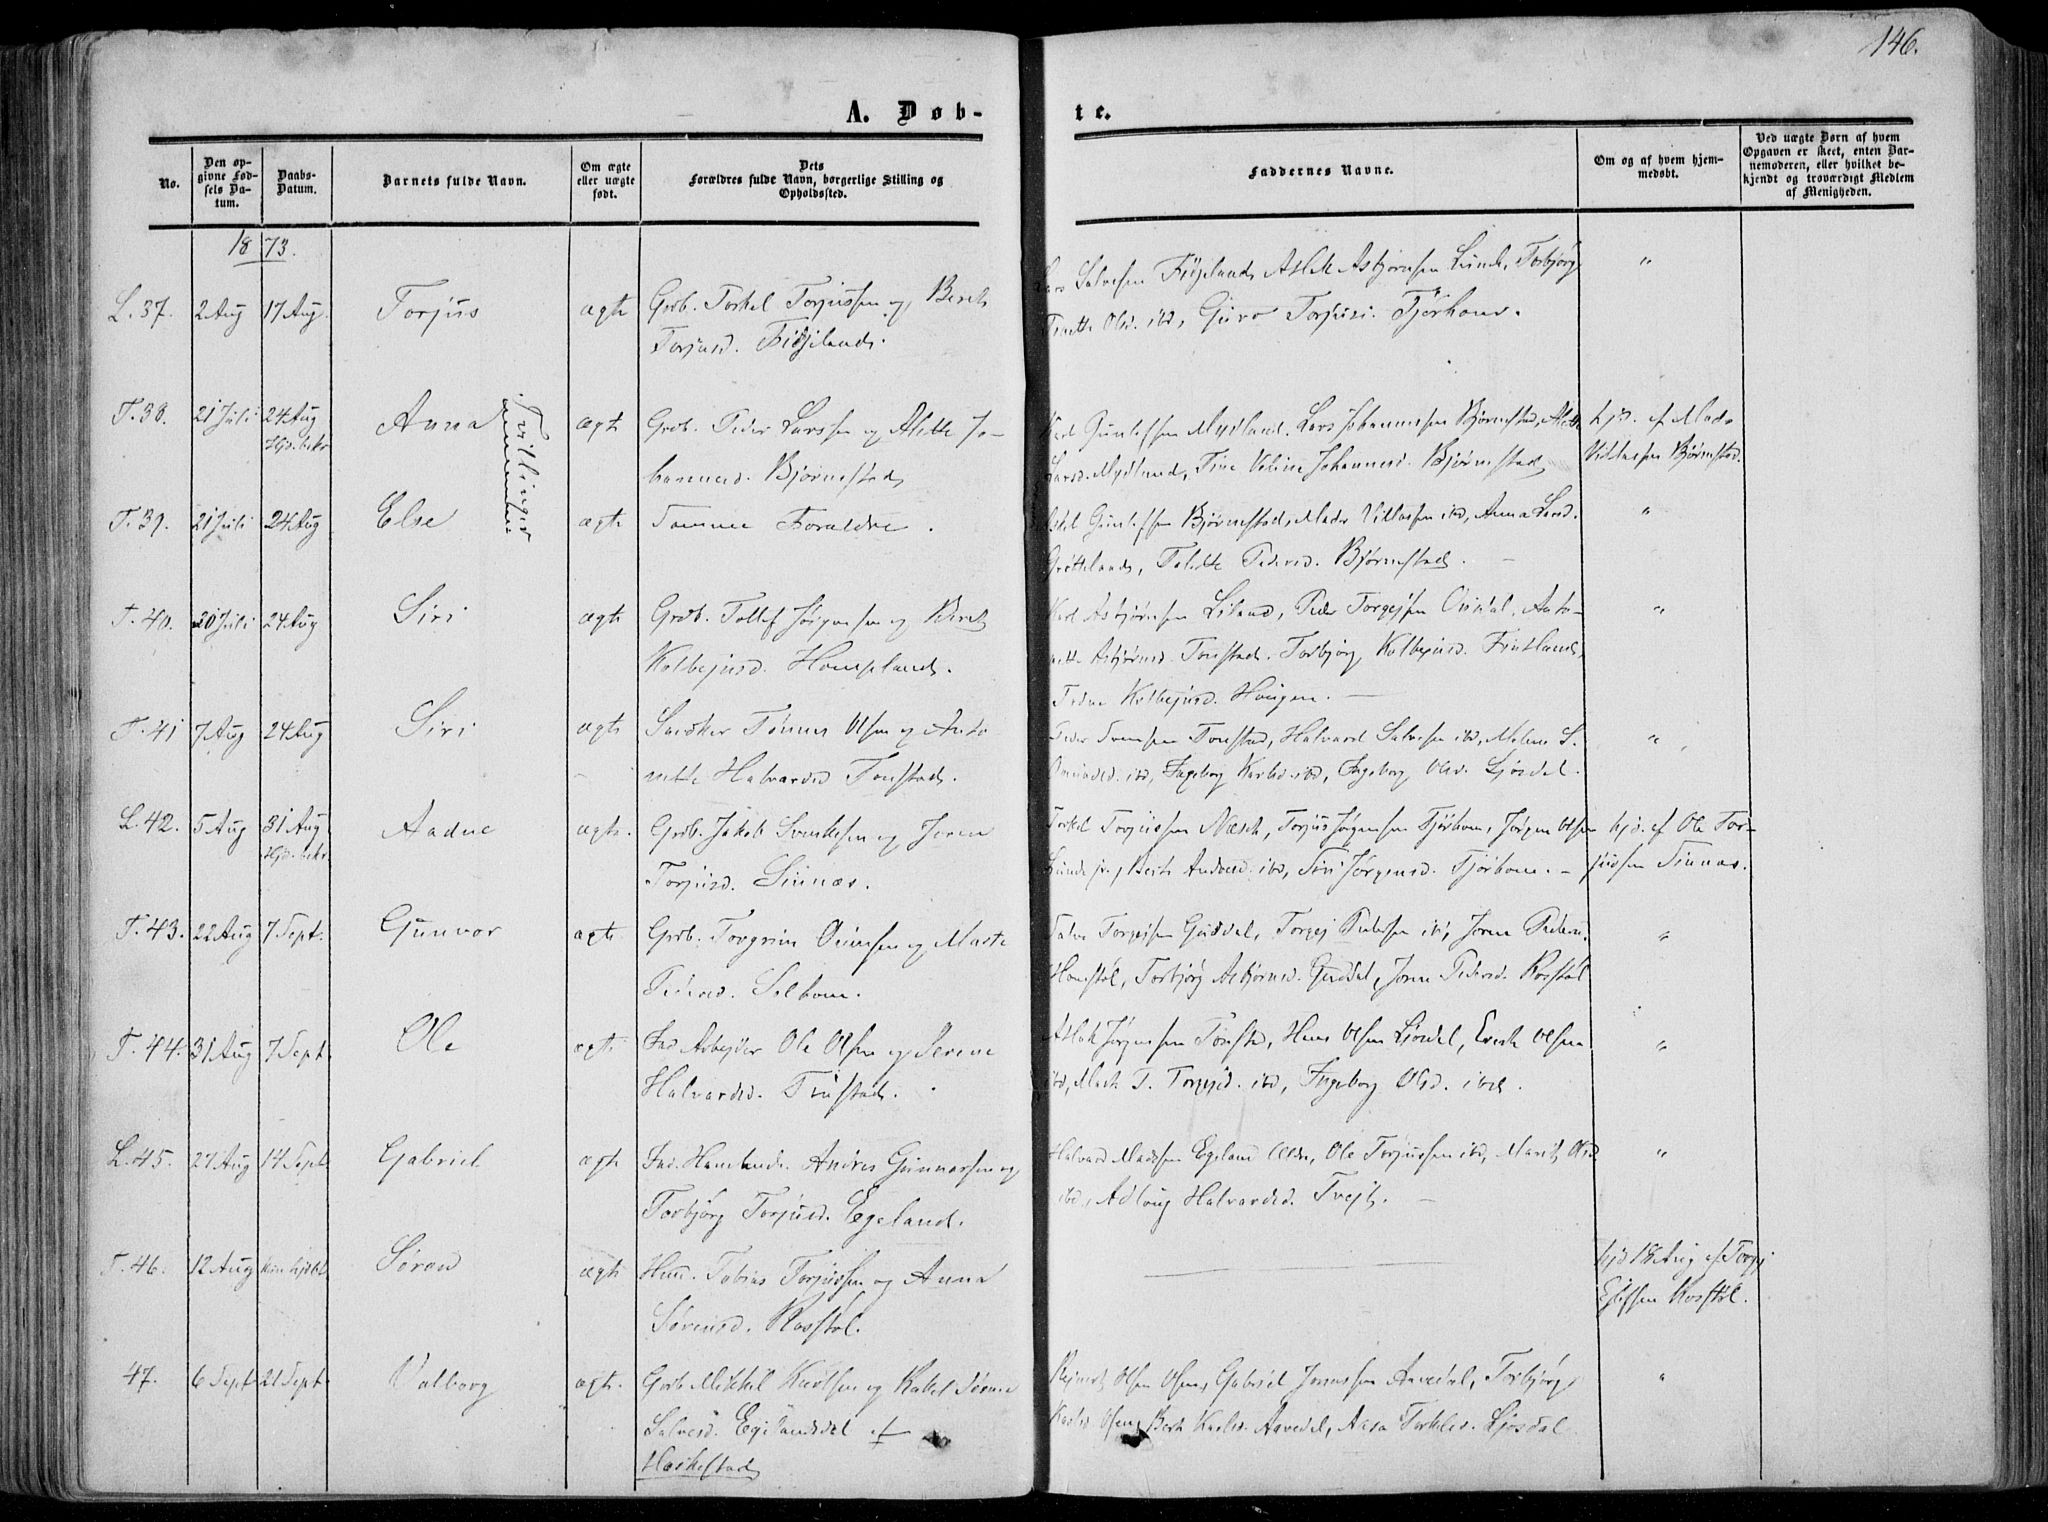 146.
A. Døb-
te.
No.
Den op-
givne Fød-
sels Da-
tum.
Daabs-
Datum.
Barnets fulde Navn.
Om ægte
eller uægte
født.
Dets
Forældres fulde Navn, borgerlige Stilling og
Opholdssted.
Faddernes Navne.
Om og af hvem hjem-
medøbt.
Ved uægte Børn af hvem
Opgaven er skeet, enten Bar-
nemoderen, eller hvilket be-
kjendt og troværdigt Medlem
af Menigheden.
1873.
L. 37. 2 Aug 17 Aug. Torjus ægte Grdb. Torkel Torjussen og Berit
Torjusd. Fidjeland.
Salvesen Fidjeland, Aslak Asbjørnsen Lunde, Torbjørg
Olsd. ibd, Guro Torjusd. Tjørhom.
"
T. 38. 21 Juli 24 Aug Anna ægte Grdb. Peder Larssen og Alette Jo-
Hjd. bekr
hannesd. Bjørnestad
Tvillinger
Karl Gunlefsen Mydland, Lars Johannessen Bjørnestad, Alette
Larsd. Mydland, Tine Johannesd. Bjørnestad
hjd. af Mads
Vidlassen Bjørnestad.
T. 39. 21 Juli 24 Aug Else ægte Samme Forældre.
Gunlefsen Bjørnestad, Mads Vidlassen ibd, Anna Larsd.
Pedersd. Bjørnestad. —
"
T. 40. 20 Juli 24 Aug Siri ægte Grdb. Tollef Jørgensen og Berit
Kolbejnsd. Hompland.
Karl Asbjørnsen Liland, Peder Torgejsen Ousdal, Anto-
nette Asbjørnsd. Tonstad. Torbjørg Kolbejnsd. Fintland,
Kolbejnsd. Hougen. —
"
T. 41 7 Aug 24 Aug Siri ægte Snedker Tønnes Olsen og Anto
nette Halvardsd Tonstad.
Peder Svensen Tonstad, Halvard Salvesen ibd, Malene S.
Omundsd. ibd, Ingeborg Karlsd. ibd, Ingeborg Olsd. Ljosdal.
"
L. 42. 5 Aug 31 Aug Aadne ægte. Grdb. Jakob Svendsen og Joren
Hjd. bekr.
Torjusd. Sinnæs.
Torkel Torjussen Næsch, Torjus Jørgensen Tjørhom, Jørgen Olsen
Lunde jr., Berte Andersd. ibd, Siri Jørgensd. Tjørhom. —
hjd. af Ole Tor-
jussen Sinnæs.
T. 43. 22 Aug 7 Sept. Gunvor ægte Grdb. Torgrim Omundsen og Marte
Pedersd. Selhom.
Salve Torgejsen Guddal, Torgej Pedersen ibd, Joren Pedersd.
Homstøl, Torbjørg Asbjørnsd. Guddal, Joren Pedersd. Rosstøl
"
T. 44. 31 Aug 7 Sept Ole ægte Ind. Arbejder Ole Olsen og Serene
Halvardsd. Tonstad.
Aslak Jørgensen Tonstad, Hans Olsen Ljosdal, Enok Olsen
ibd, Torgejsd. ibd, Ingeborg Olsd. ibd.
"
L. 45. 27 Aug 14 Sept. Gabriel ægte Ind. Andres Gunnarsen og
Torbjørg Torjusd. Egeland.
Halvard Madssen Egeland Ældre, Ole Torjussen ibd, Marit Olsd
ibd, Halvardsd. Tvejt. —
"
T. 46. 12 Aug Søren ægte Husm. Tobias Torjussen og Anna
Sørensd. Rosstøl.
hjd 18 Aug af Torgej
Rosstøl.
47. 6 Sept. 21 Sept. Valborg ægte. Grdb Mikkel Knudsen og Rakel Serine
Salvesd. Egelandsdal
Hæskestad
Rejnert Olsen Gabriel Jonassen Aavedal, Torbjørg
Karlsd. Berte Karlsd. Aavedal, Aasa Torkelsd. Ljosdal
"